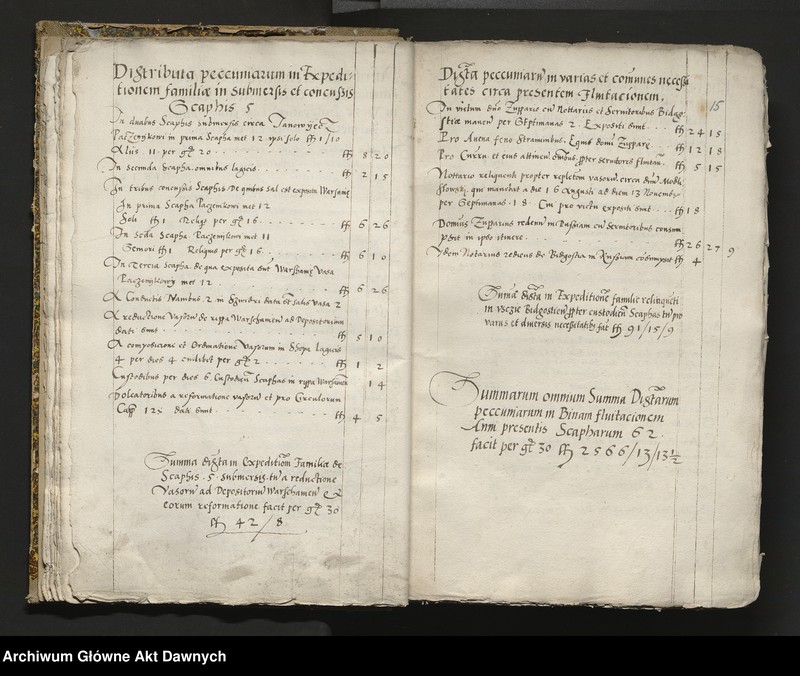 Distributa pecuniarum in Expedi-
tionem familiæ in submersis et concussis
Scaphis 5
In duabus Scaphis submersis circa
Paczenykowi in prima Scapha met 12 ipsi solo fl 1/10
Aliis 11 per gr 20 fl 8 20
In secunda Scapha omnibus laģicis fl 2 15
In tribus concussis Scaphis De quibus sal est exposita Warsaviæ
In prima Scapha Paczenikowi met 12
Soli fl 1 Reliqs per gr 16 fl 6 26
In Scda Scapha Paczenykowi met 11
Semori fl 1 Reliquis per gr 16 fl 6 10
In Tercia Scapha de qua exposita sut Warschauiæ Vasa
Paczenykowy met 12 fl 6 26
A Conductis Nauibus 2 in data et salis vasa 2
A reductione Vasoru de rippa Warschauien ad Depositorium
dati sunt fl 5 10
A compositione et Ordinatione Vasorum in Shopa Lagicis
4 per dies 4 cuilibet per gr 2 fl 1 2
Custodibus per dies 6 Custodien Scaphas in rippa Warschauien 14
Doleatoribus a reformatione vasoru et pro Circulorum
Cap 12x dati sunt fl 4 5
Summa digta in expeditiom Familiæ de
Scaphis 5 submersis tu a reductione
Vasoru ad Depositoriu Warschauien Et
eorum reformatione facit per gr 30
fl 42/8
15
Digta pecuniaru in varias et comunes necessi
tates circa presentem fluitacionem
In victum dni Zupparis cu Notariis et Seruitoribus Bidgo-
stiæ manen per septimanas 2 Expositi sunt fl 24 15
Pro Auena feno Straminibus Equis domi Zupparis fl 12 18
Pro Curru et eius attinen ppter seruitores fluitan fl 5 15
Notario relinquenti propter repletom vasoru circa dnm
qui manebat a die 16 Augusti ad diem 13 Nouembr
per septimanas 18 Cui pro victu expositi sunt fl 18
Domin Zupparus rediens in Russiam cu Seruitoribus consum
psit in ipso itinere fl 26 27 9
Idem Notarius rediens de Bidgostia in Russiam cosumpsit fl 4
Suma digta in Expeditione familie relinqueti
in Bidgostien ppter custodien Scaphas tu pro
varus et diuersis necessitatibs fat fl 91/15/9
Summarum omnium Summa Digtarum
peccuniarum in Binam fluitacionem
Anni presentis Scapharum 62
facit per gr 30 fl 2566/13/13½
Archiwum Główne Akt Dawnych